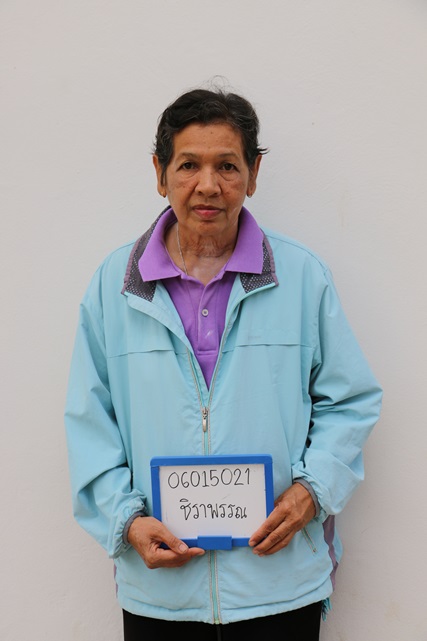 06015021
ชิราพรรณ